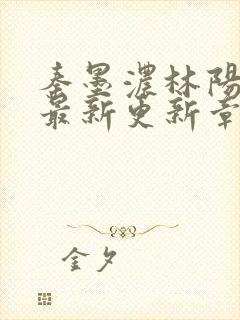 秦墨濃林陽
最新更新章
金夕